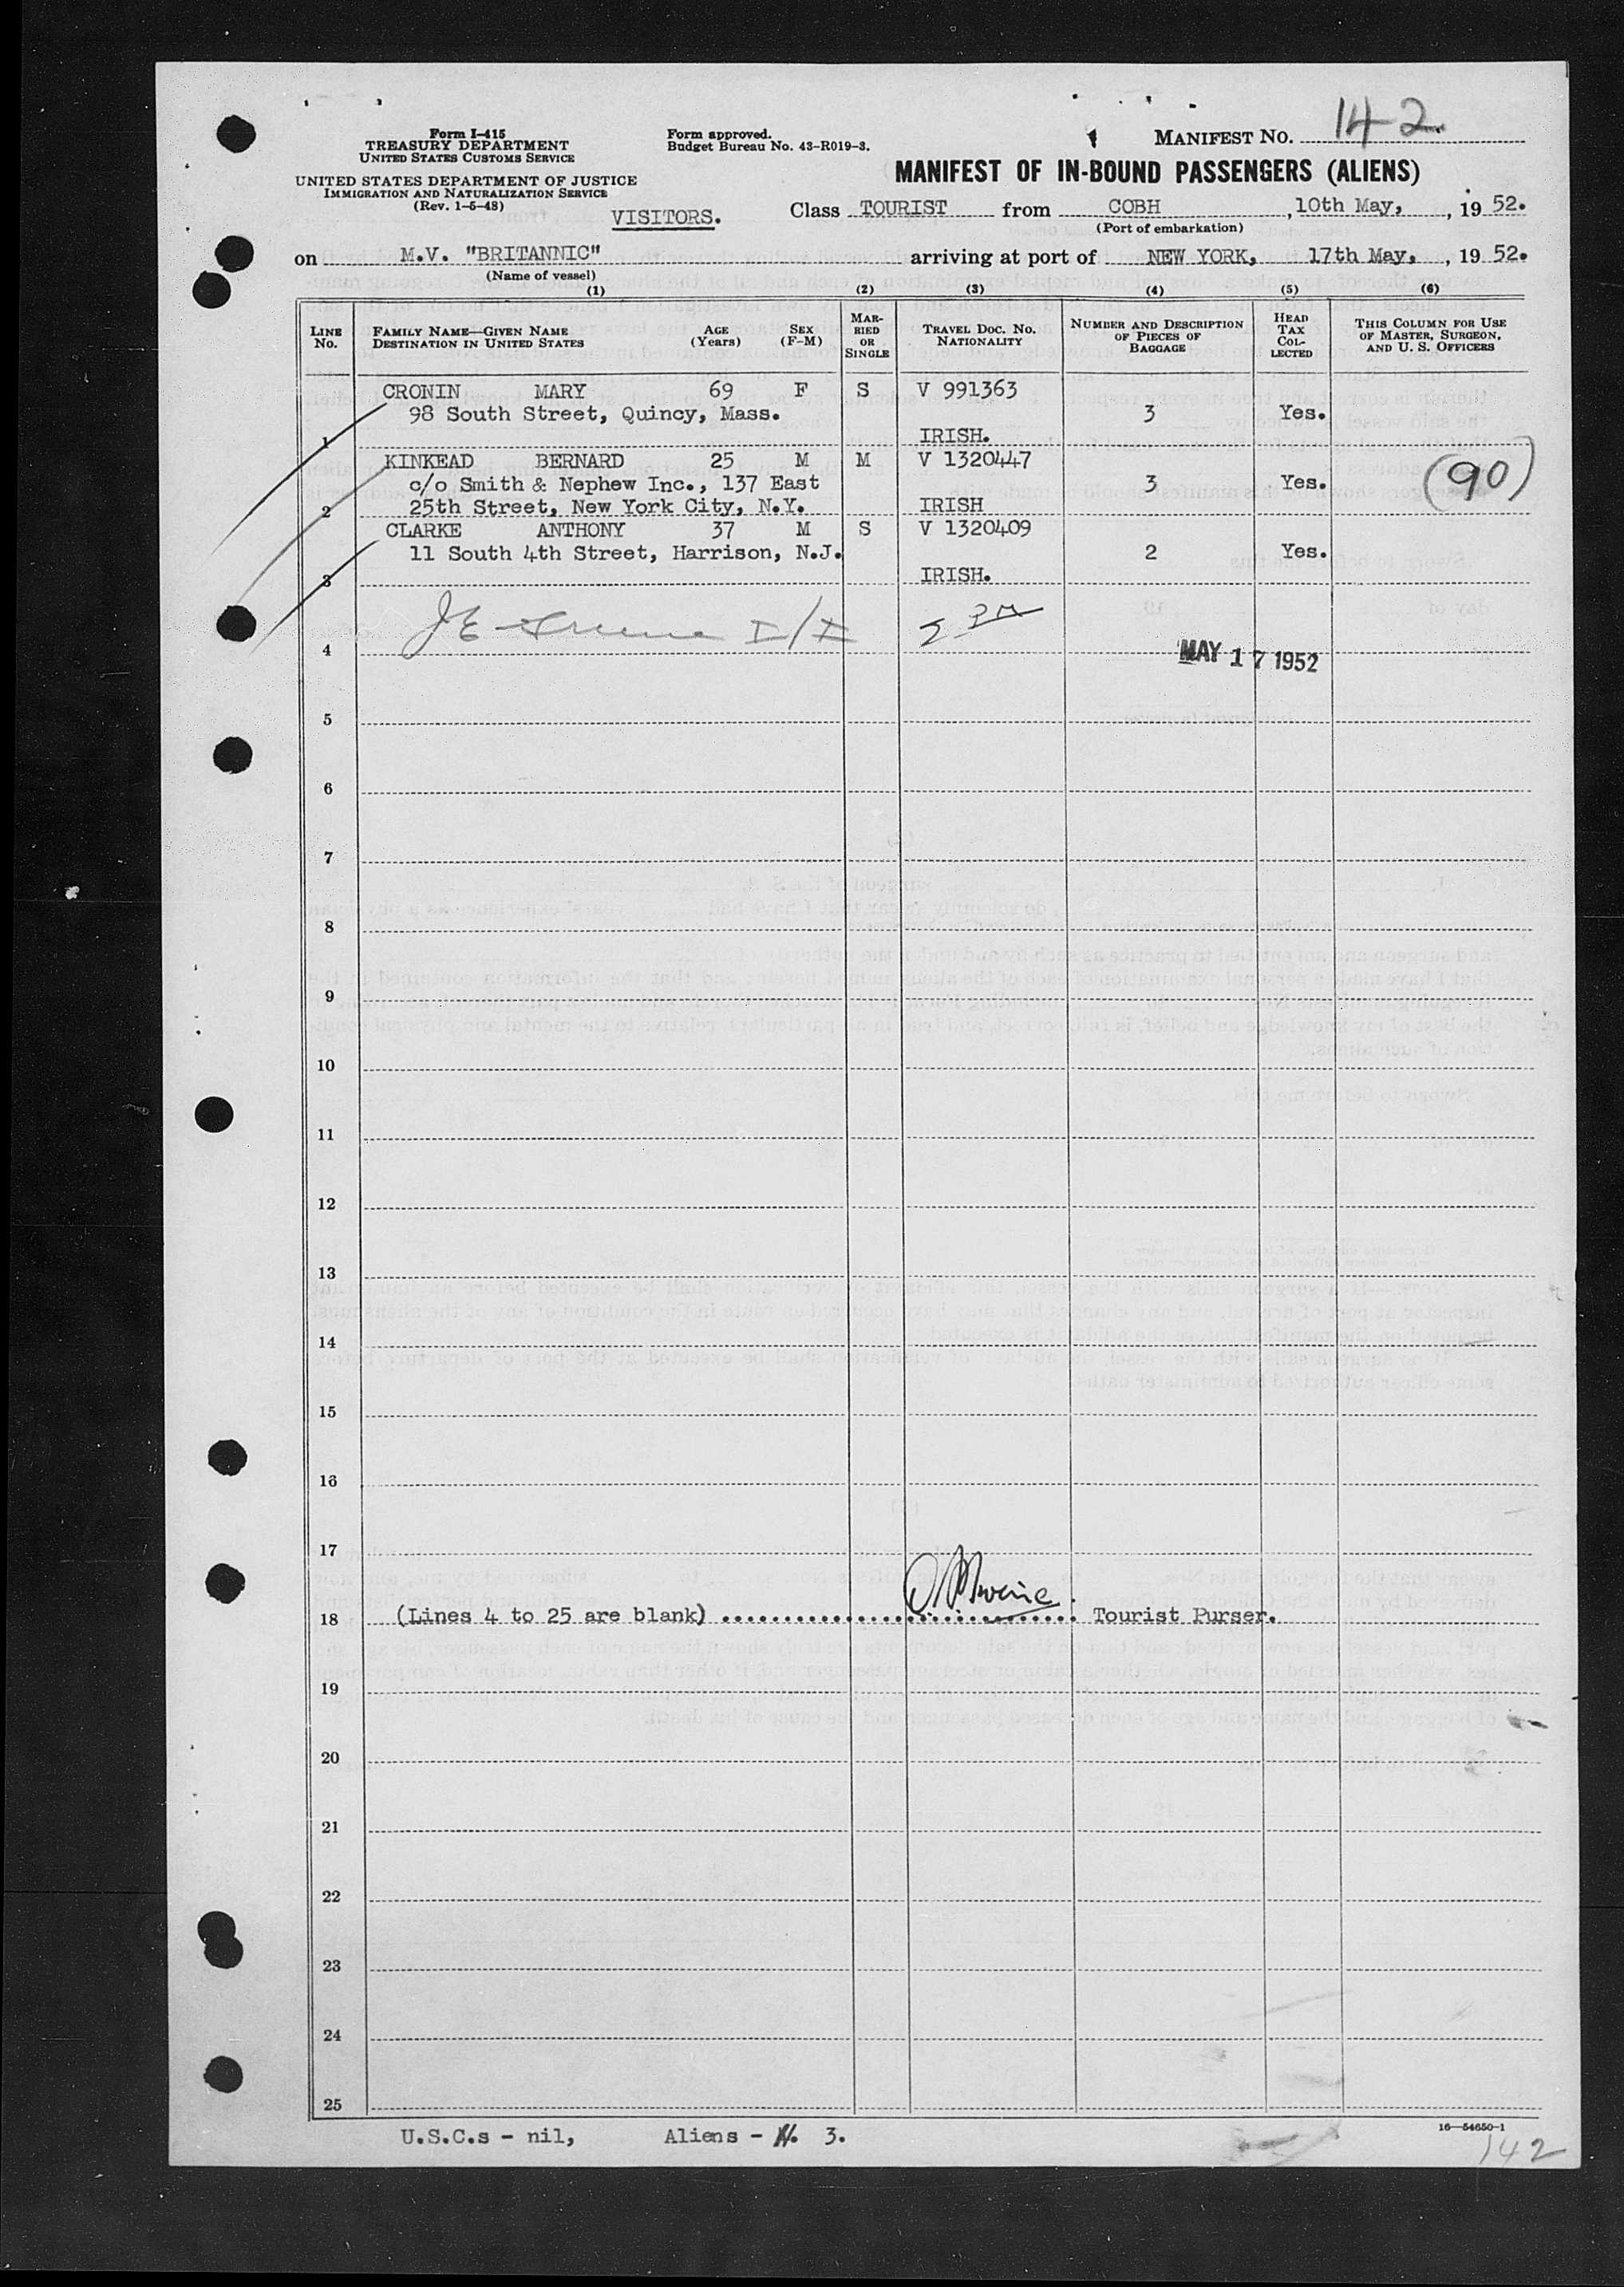 Form I-415
TREASURY DEPARTMENT
UNITED STATES CUSTOMS SERVICE
UNITED STATES DEPARTMENT OF JUSTICE
IMMIGRATION AND NATURALIZATION SERVICE
(Rev. 1-5-48)
Form approved.
Budget Bureau No. 43-R019-3.
MANIFEST NO. 142
MANIFEST OF IN-BOUND PASSENGERS (ALIENS)
VISITORS. Class TOURIST from COBH, 10th May, , 19 52.
(Port of embarkation)
on M.V. "BRITANNIC" arriving at port of NEW YORK, 17th May, , 19 52.
(Name of vessel)
(1) (2) (3) (4) (5) (6)
LINE No. FAMILY NAME—GIVEN NAME DESTINATION IN UNITED STATES AGE (Years) SEX (F-M) MARRIED OR SINGLE TRAVEL DOC. NO. NATIONALITY NUMBER AND DESCRIPTION OF PIECES OF BAGGAGE HEAD TAX COLLECTED THIS COLUMN FOR USE OF MASTER, SURGEON, AND U. S. OFFICERS
CRONIN MARY 69 F S V 991363
98 South Street, Quincy, Mass. 3 Yes.
1 IRISH.
KINKEAD BERNARD 25 M M V 1320447
c/o Smith & Nephew Inc., 137 East 3 Yes. (90)
2 25th Street, New York City, N.Y. IRISH
CLARKE ANTHONY 37 M S V 1320409
11 South 4th Street, Harrison, N.J. 2 Yes.
3 IRISH.
4 MAY 17 1952
5
6
7
8
9
10
11
12
13
14
15
16
17
18 (Lines 4 to 25 are blank) Tourist Purser.
19
20
21
22
23
24
25
U.S.C.s - nil, Aliens - 3.
16—54650-1
142